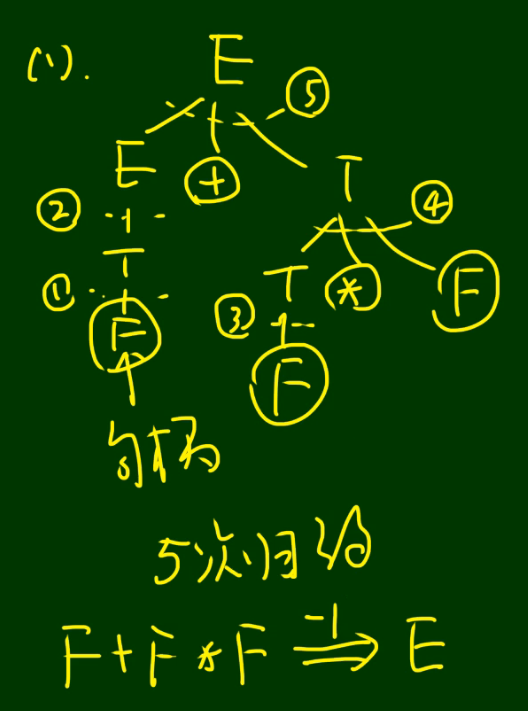 (1).
E
⑤
E + T
② ④
T T * F
① ③
F F
句柄
5次归约
F+F*F ⇒ -1 E